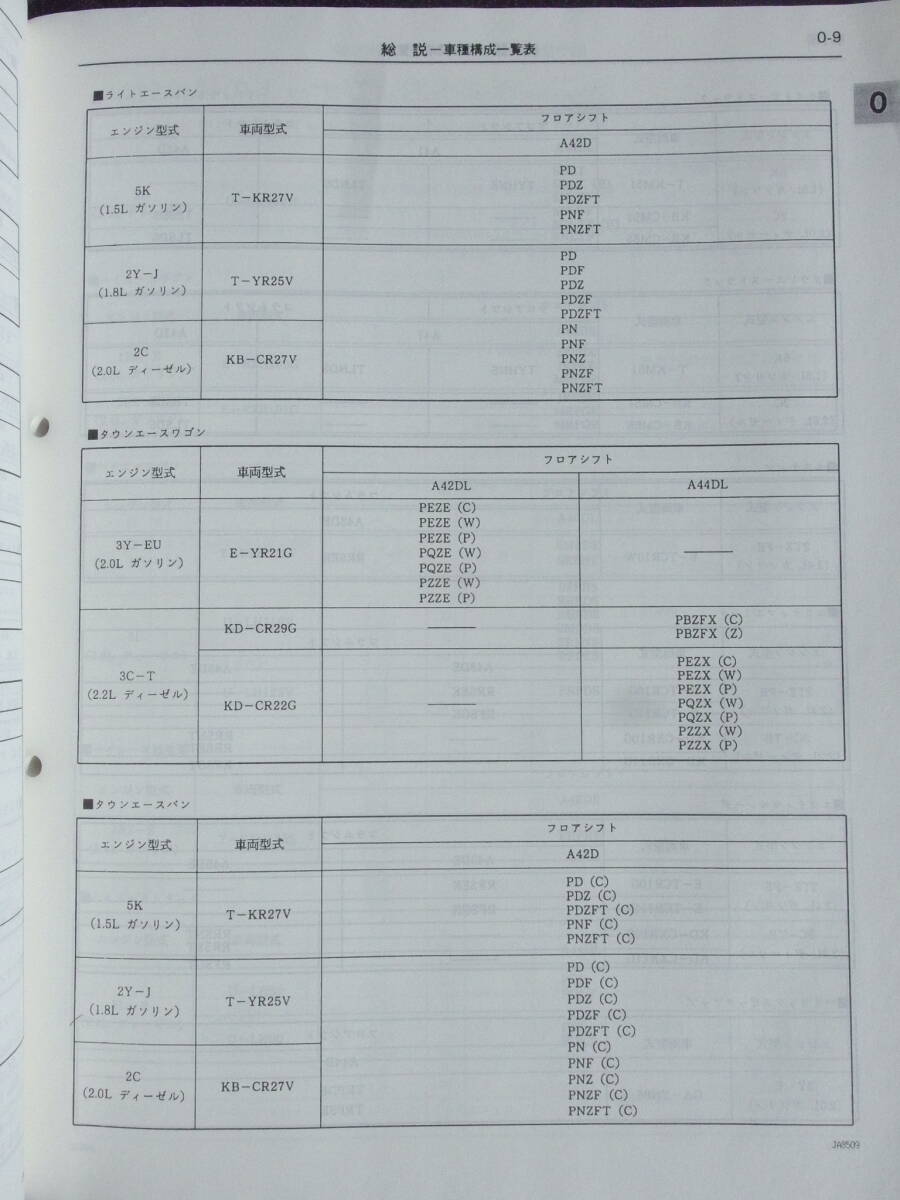 総 説－車種構成一覧表
0-9
0
■ライトエースバン
エンジン型式 車両型式 フロアシフト
A42D
5K
(1.5L ガソリン)
T－KR27V
PD
PDZ
PDZFT
PNF
PNZFT
2Y－J
(1.8L ガソリン)
T－YR25V
2C
(2.0L ディーゼル)
KB－CR27V
PD
PDF
PDZ
PDZF
PDZFT
PN
PNF
PNZ
PNZF
PNZFT
■タウンエースワゴン
エンジン型式 車両型式 フロアシフト
A42DL A44DL
3Y－EU
(2.0L ガソリン)
E－YR21G
PEZE (C)
PEZE (W)
PEZE (P)
PQZE (W)
PQZE (P)
PZZE (W)
PZZE (P)
3C－T
(2.2L ディーゼル)
KD－CR29G
PBZFX (C)
PBZFX (Z)
KD－CR22G
PEZX (C)
PEZX (W)
PEZX (P)
PQZX (W)
PQZX (P)
PZZX (W)
PZZX (P)
■タウンエースバン
エンジン型式 車両型式 フロアシフト
A42D
5K
(1.5L ガソリン)
T－KR27V
PD (C)
PDZ (C)
PDZFT (C)
PNF (C)
PNZFT (C)
2Y－J
(1.8L ガソリン)
T－YR25V
2C
(2.0L ディーゼル)
KB－CR27V
PD (C)
PDF (C)
PDZ (C)
PDZF (C)
PDZFT (C)
PN (C)
PNF (C)
PNZ (C)
PNZF (C)
PNZFT (C)
JA8509